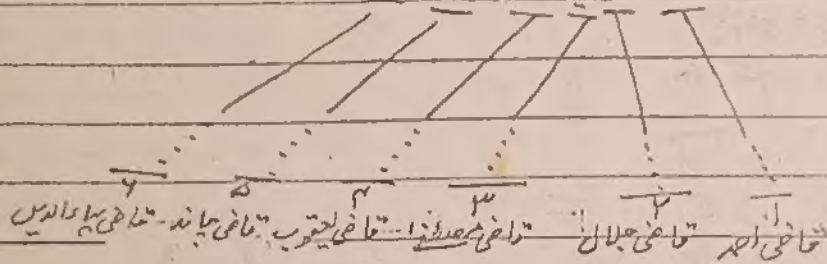 ۱ ۲ ۳ ۴ ۵ ۶
قاضی احمد قاضی جلال قاضی قاضی یعقوب قاضی چاند - قاضی بہاءالدین